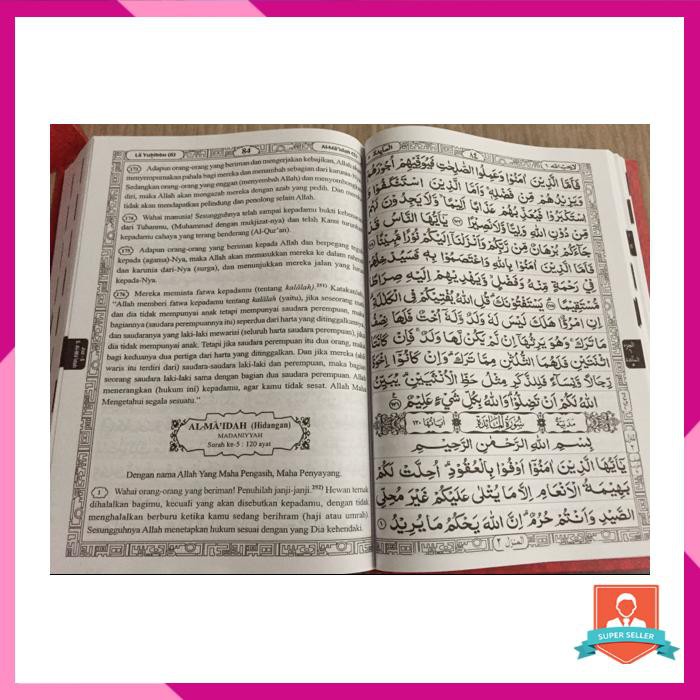 Lā Yuḥibbu (6) 84 Al-Mā'idah
173 Adapun orang-orang yang beriman dan mengerjakan kebajikan, Allah akan
menyempurnakan pahala bagi mereka dan menambah sebagian dari karunia-
Sedangkan orang-orang yang enggan (menyembah Allah) dan menyombongkan
diri, maka Allah akan mengazab mereka dengan azab yang pedih. Dan mereka
tidak akan mendapatkan pelindung dan penolong selain Allah.
174 Wahai manusia! Sesungguhnya telah sampai kepadamu bukti kebenaran
dari Tuhanmu, (Muhammad dengan mukjizat-nya) dan telah Kami turunkan
kepadamu cahaya yang terang benderang (Al-Qur'an).
175 Adapun orang-orang yang beriman kepada Allah dan berpegang teguh
kepada (agama)-Nya, maka Allah akan memasukkan mereka ke dalam rahmat
dan karunia dari-Nya (surga), dan menunjukkan mereka jalan yang lurus
kepada-Nya.
176 Mereka meminta fatwa kepadamu (tentang kalālah).251) Katakanlah,
"Allah memberi fatwa kepadamu tentang kalālah (yaitu), jika seseorang
dan dia tidak mempunyai anak tetapi mempunyai saudara perempuan, maka
bagiannya (saudara perempuannya itu) seperdua dari harta yang ditinggalkannya,
dan saudaranya yang laki-laki mewarisi (seluruh harta saudara perempuan), jika
dia tidak mempunyai anak. Tetapi jika saudara perempuan itu dua orang, maka
bagi keduanya dua pertiga dari harta yang ditinggalkan. Dan jika mereka (ahli
waris itu terdiri dari) saudara-saudara laki-laki dan perempuan, maka bagian
seorang saudara laki-laki sama dengan bagian dua saudara perempuan. Allah
menerangkan (hukum ini) kepadamu, agar kamu tidak sesat. Allah Maha
Mengetahui segala sesuatu."
AL-MĀ'IDAH (Hidangan)
MADANIYYAH
Surah ke-5 : 120 ayat
Dengan nama Allah Yang Maha Pengasih, Maha Penyayang.
1 Wahai orang-orang yang beriman! Penuhilah janji-janji.252) Hewan ternak
dihalalkan bagimu, kecuali yang akan disebutkan kepadamu, dengan tidak
menghalalkan berburu ketika kamu sedang berihram (haji atau umrah).
Sesungguhnya Allah menetapkan hukum sesuai dengan yang Dia kehendaki.
لايحب الله ٦ ٨٤ المائدة
فَاَمَّا الَّذِيْنَ اٰمَنُوْا وَعَمِلُوا الصّٰلِحٰتِ فَيُوَفِّيْهِمْ اُجُوْرَهُمْ
وَيَزِيْدُهُمْ مِّنْ فَضْلِهٖ وَاَمَّا الَّذِيْنَ اسْتَنْكَفُوْا وَ
اسْتَكْبَرُوْا فَيُعَذِّبُهُمْ عَذَابًا اَلِيْمًا وَّلَا يَجِدُوْنَ لَهُمْ
مِّنْ دُوْنِ اللّٰهِ وَلِيًّا وَّلَا نَصِيْرًا ۝١٧٣ يٰٓاَيُّهَا النَّاسُ قَدْ
جَاۤءَكُمْ بُرْهَانٌ مِّنْ رَّبِّكُمْ وَاَنْزَلْنَآ اِلَيْكُمْ نُوْرًا مُّبِيْنًا ۝١٧٤
فَاَمَّا الَّذِيْنَ اٰمَنُوْا بِاللّٰهِ وَاعْتَصَمُوْا بِهٖ فَسَيُدْخِلُهُمْ
فِيْ رَحْمَةٍ مِّنْهُ وَفَضْلٍ وَّيَهْدِيْهِمْ اِلَيْهِ صِرَاطًا
مُّسْتَقِيْمًا ۝١٧٥ يَسْتَفْتُوْنَكَ قُلِ اللّٰهُ يُفْتِيْكُمْ فِى الْكَلٰلَةِ
اِنِ امْرُؤٌا هَلَكَ لَيْسَ لَهٗ وَلَدٌ وَّلَهٗٓ اُخْتٌ فَلَهَا نِصْفُ
مَا تَرَكَ وَهُوَ يَرِثُهَآ اِنْ لَّمْ يَكُنْ لَّهَا وَلَدٌ فَاِنْ كَانَتَا
اثْنَتَيْنِ فَلَهُمَا الثُّلُثٰنِ مِمَّا تَرَكَ وَاِنْ كَانُوْٓا اِخْوَةً
رِّجَالًا وَّنِسَاۤءً فَلِلذَّكَرِ مِثْلُ حَظِّ الْاُنْثَيَيْنِ يُبَيِّنُ
اللّٰهُ لَكُمْ اَنْ تَضِلُّوْا وَاللّٰهُ بِكُلِّ شَيْءٍ عَلِيْمٌ ۝١٧٦
مَدَنِيَّةٌ سُوْرَةُ الْمَائِدَةِ اٰيَاتُهَا ١٢٠
بِسْمِ اللّٰهِ الرَّحْمٰنِ الرَّحِيْمِ
يٰٓاَيُّهَا الَّذِيْنَ اٰمَنُوْٓا اَوْفُوْا بِالْعُقُوْدِ اُحِلَّتْ لَكُمْ
بَهِيْمَةُ الْاَنْعَامِ اِلَّا مَا يُتْلٰى عَلَيْكُمْ غَيْرَ مُحِلِّى
الصَّيْدِ وَاَنْتُمْ حُرُمٌ اِنَّ اللّٰهَ يَحْكُمُ مَا يُرِيْدُ ۝١
المنزل ٢
SUPER SELLER